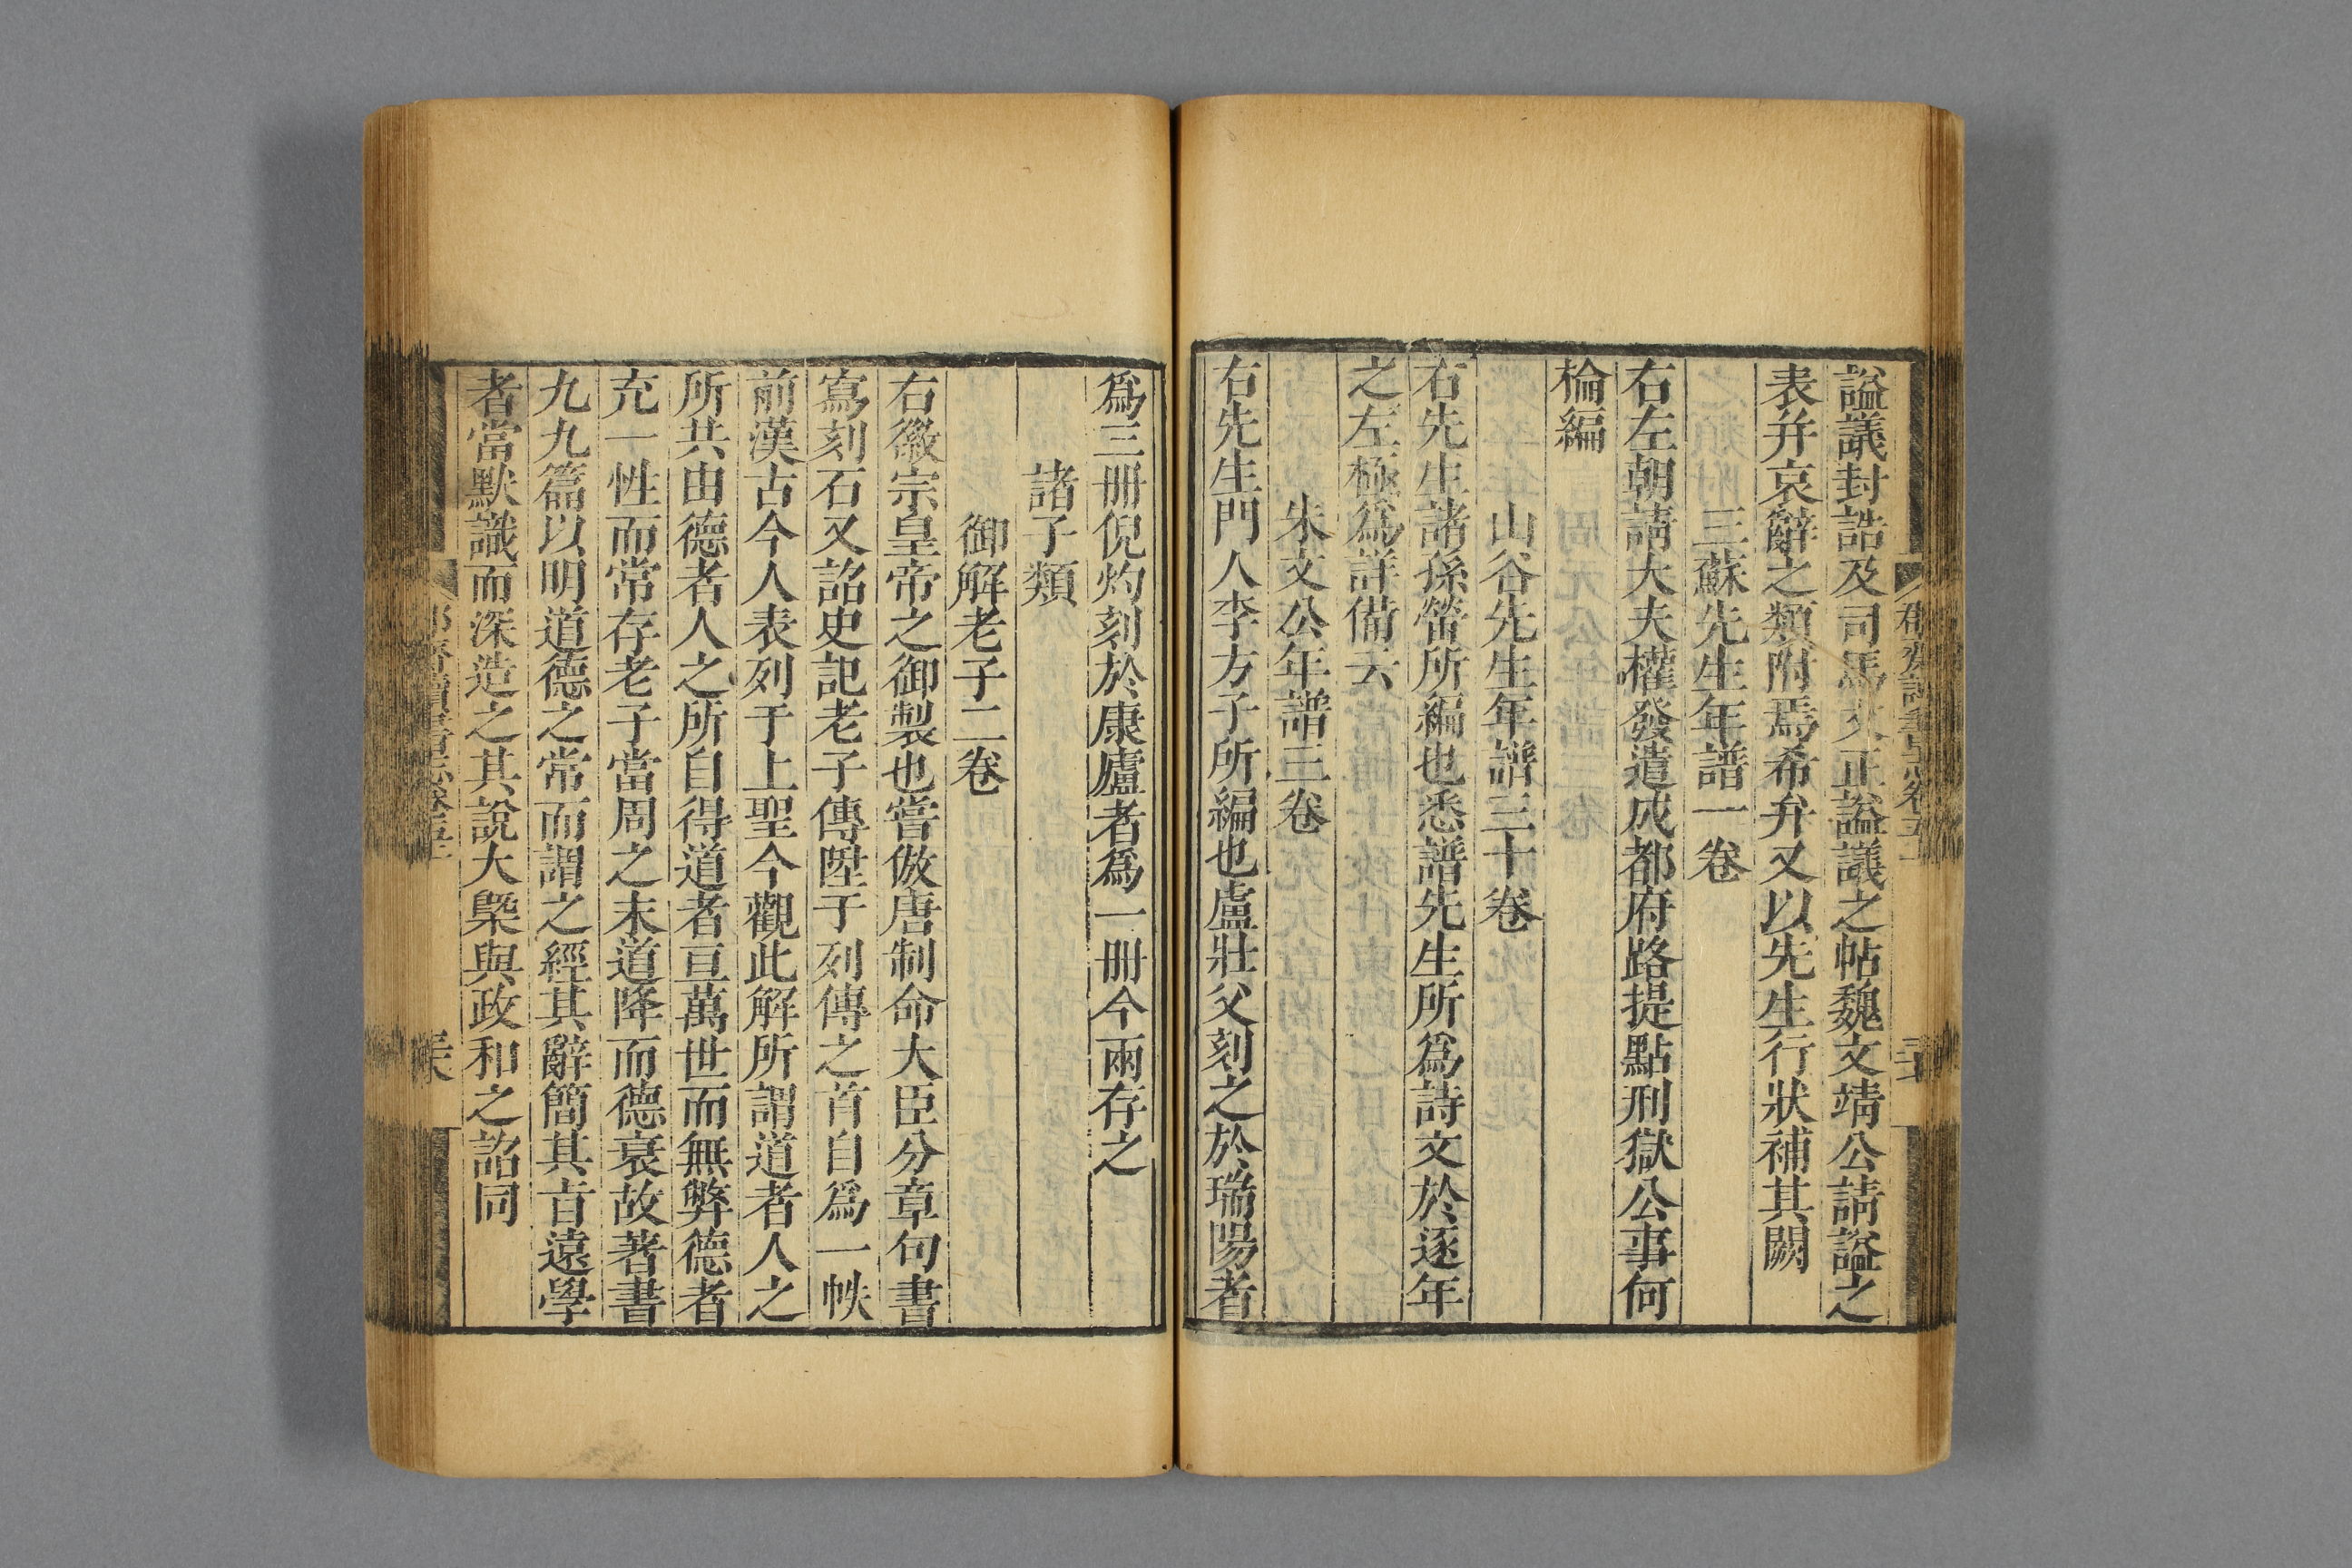 諡議封誥及司馬文正諡議之帖魏文靖公請諡之
表并哀辭之類附焉希弁又以先生行狀補其闕
三蘇先生年譜一卷
右左朝請大夫權發遣成都府路提點刑獄公事何
掄編
山谷先生年譜三十卷
右先生諸孫䇓所編也悉譜先生所爲詩文於逐年
之左極爲詳備云
朱文公年譜三卷
右先生門人李方子所編也盧壯父刻之於瑞陽者
爲三冊倪灼刻於康廬者爲一冊今兩存之
諸子類
御解老子二卷
右徽宗皇帝之御製也嘗倣唐制命大臣分章句書
寫刻石又詔史記老子傳陞于列傳之首自爲一帙
前漢古今人表列于上聖今觀此解所謂道者人之
所共由德者人之所自得道者亘萬世而無弊德者
充一性而常存老子當周之末道降而德衰故著書
九九篇以明道德之常而謂之經其辭簡其㫖遠學
者當默識而深造之其說大槩與政和之詔同